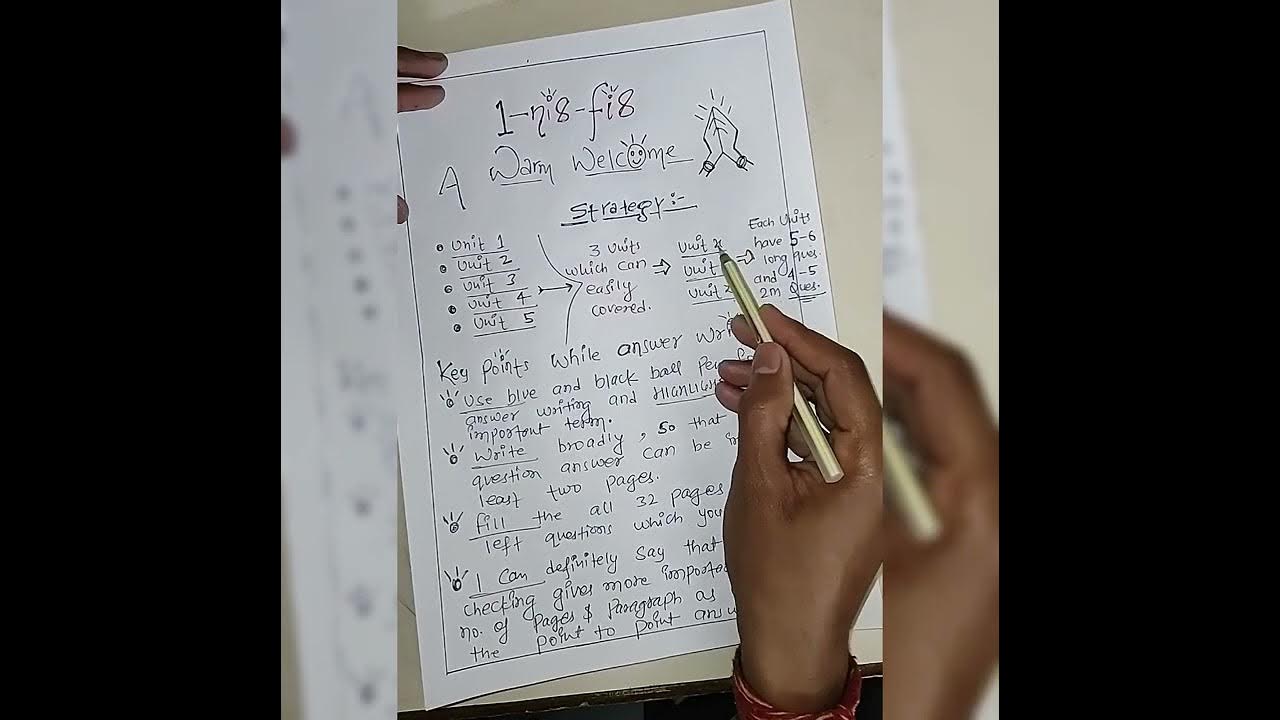 1-ni8-fi8
A Warm Welcome
Strategy:-
Unit 1
Unit 2
Unit 3
Unit 4
Unit 5
3 Units
which can
easily
covered.
Unit x
Unit
Unit
Each Units
have 5-6
long ques.
and 4-5
2m Ques.
Key points while answer
use blue and black ball
answer writing and
important term.
Write broadly, so that
question answer can be
least two pages.
fill the all 32 pages
left questions which you
I can definitely say that
checking gives more
no. of pages & paragraph as
the point to point